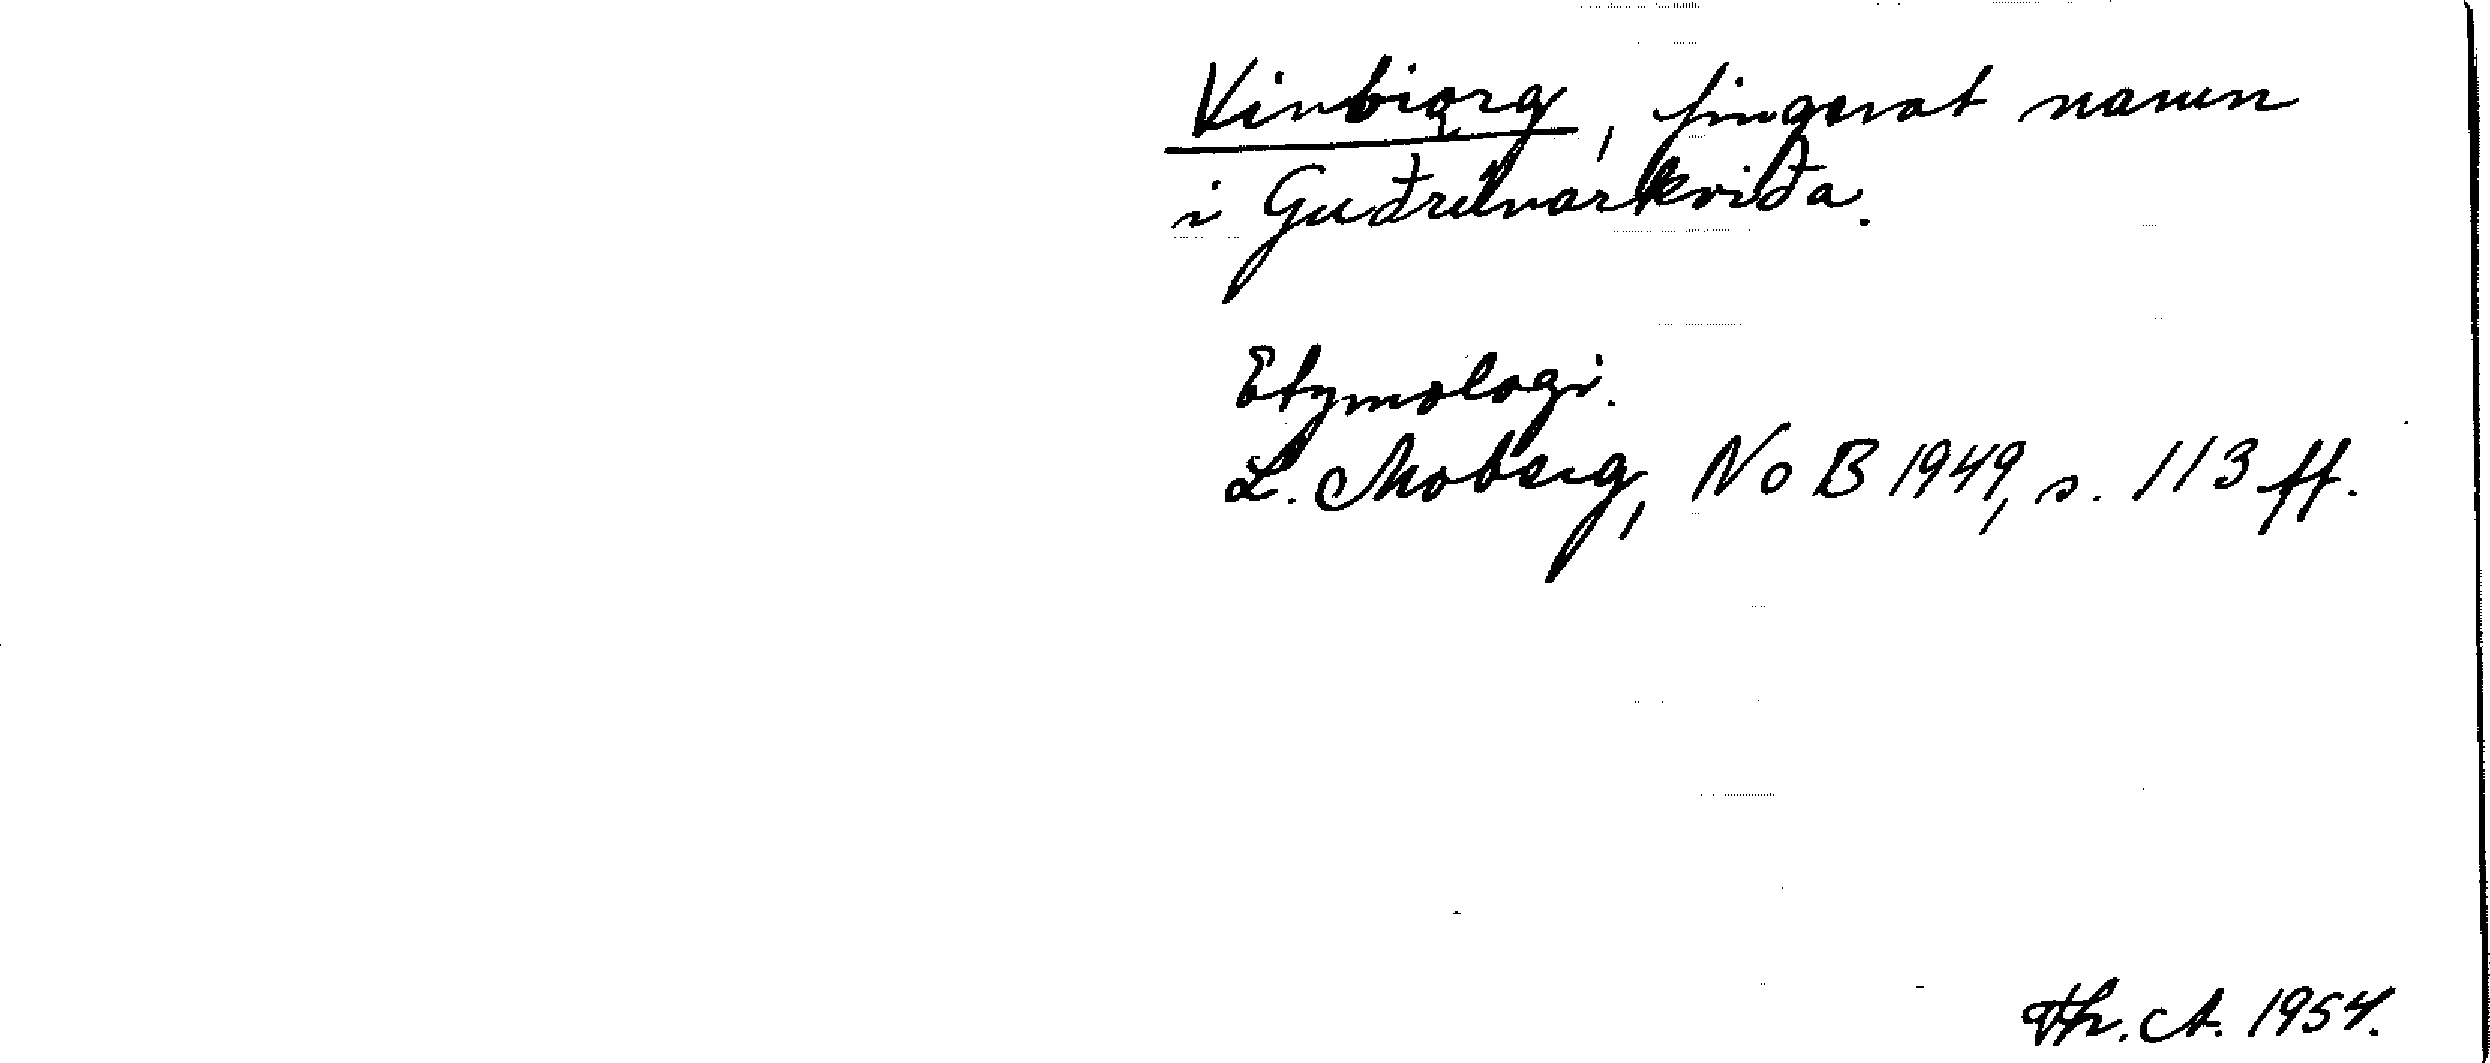 Vinbiǫrg, fingerat namn
i Guðrúnarkviða.
Etymologi.
L. Moberg, NoB 1949, s. 113 ff.
Th. A. 1954.